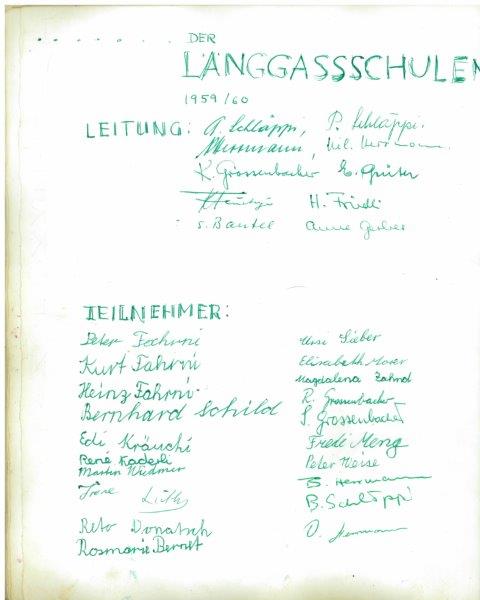 DER
LÄNGGASSSCHULEN
1959/60
LEITUNG: A. Schläppi, P. Schläppi.
Herrmann
K. Grossenbacher
H. Friedli
S. Bautel Anne Gerber
TEILNEHMER:
Peter Fahrni
Kurt Fahrni
Heinz Fahrni
Bernhard Schild
Edi Kräuchi
René Kaderli
Martin Widmer
Irene Lüthy
Reto Donatsch
Rosmarie Bernet
Ursi Sieber
Elisabeth Moser
Magdalena Zahnd
R. Grossenbacher
S. Grossenbacher
Fredi Meng
Peter Weise
B. Herrmann
B. Schläppi
D. Herrmann